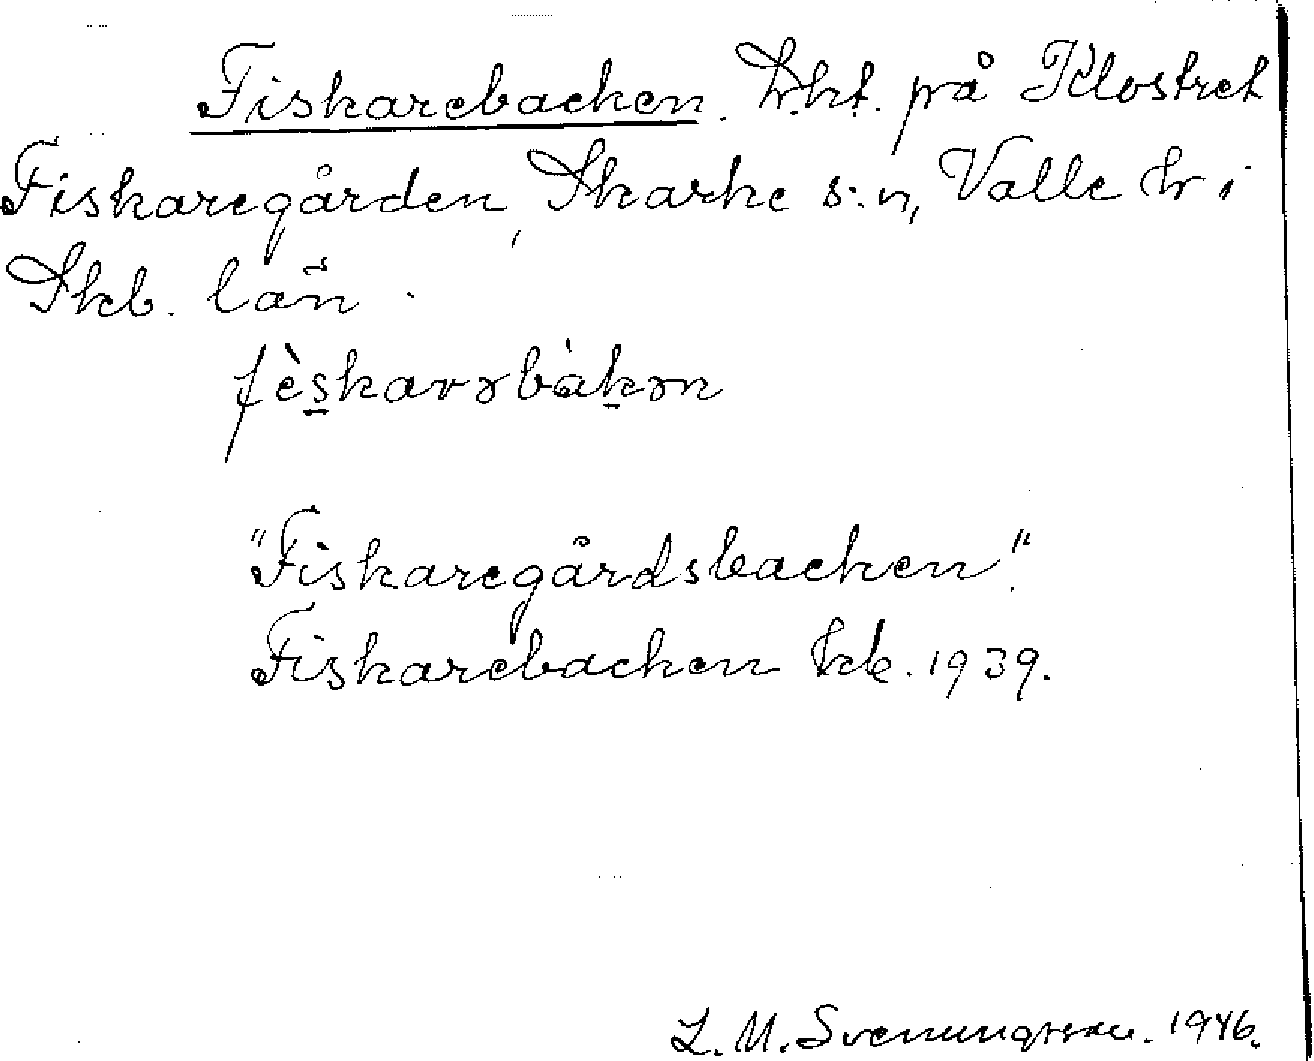 Fiskarebacken. Hkt. på Klostret
Fiskaregården, Skarke s:n, Valle hr i
Skb. län.
fèskarəbàkən
"Fiskaregårdsbacken".
Fiskarebacken kb. 1939.
L. M. Svenungsson. 1946.